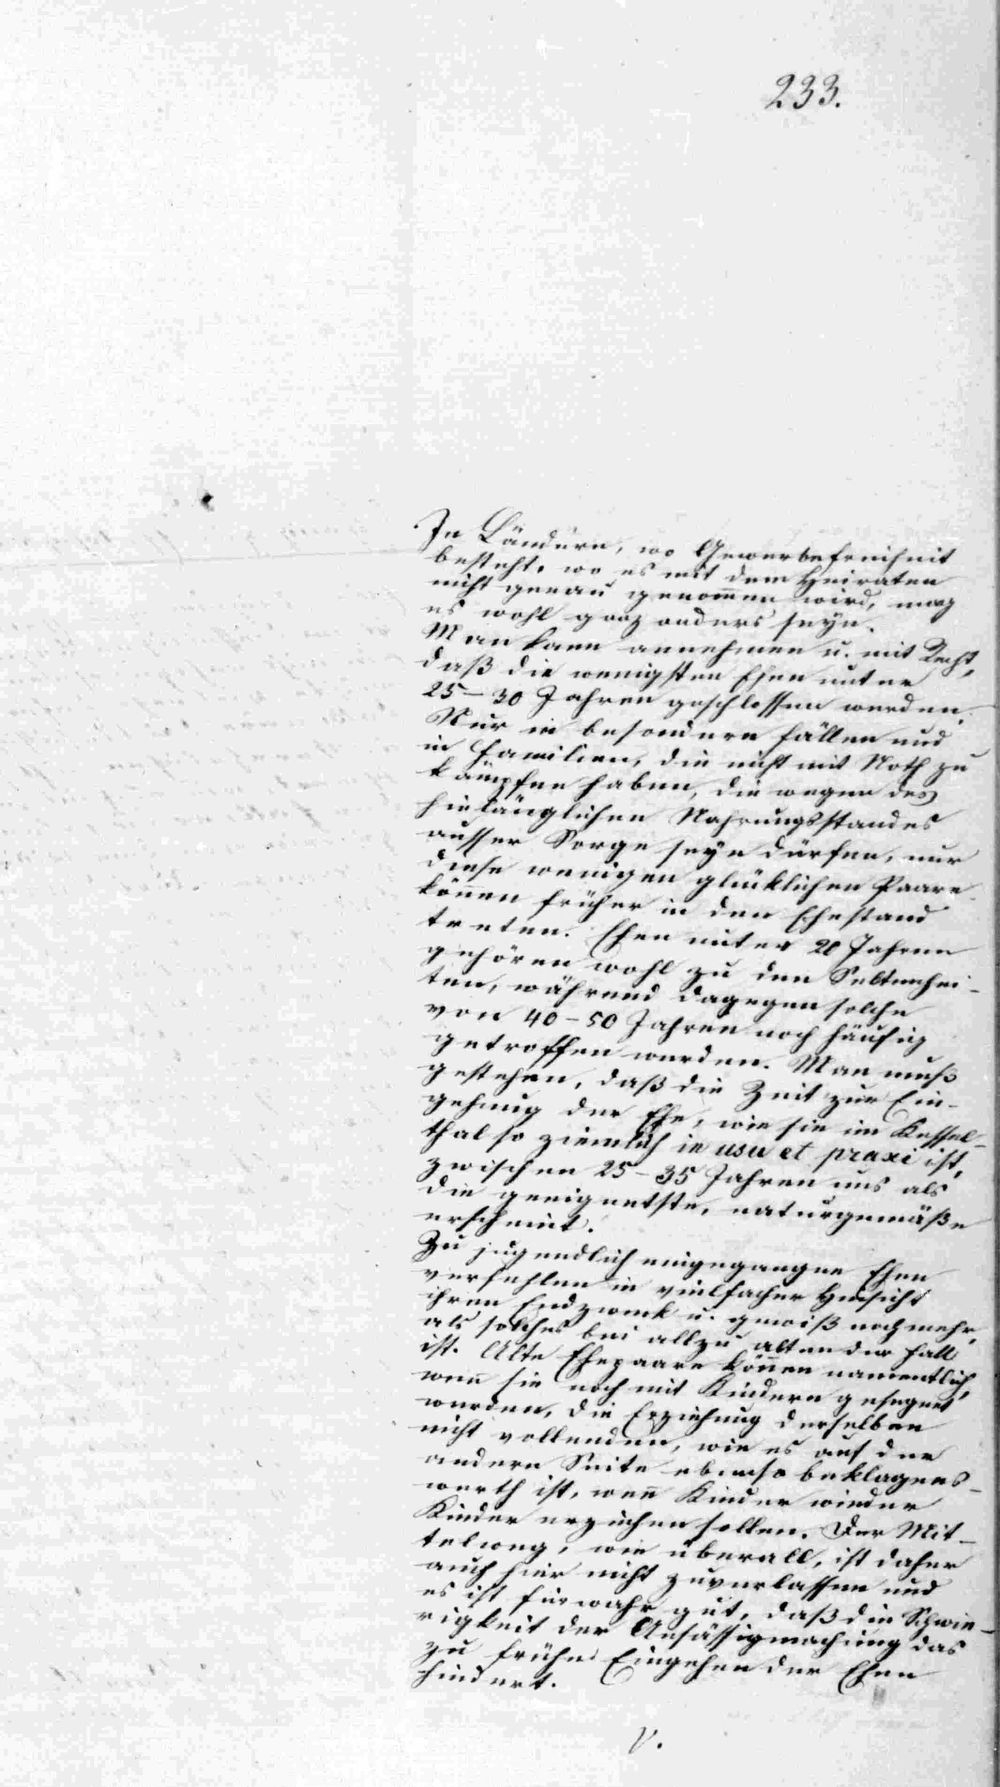 233.
In Ländern, wo Gewerbefreiheit
besteht, wo es mit dem Heiraten
nicht genau genom̄en wird, mag
es wohl ganz anders seyn.
Man kann annehmen u. mit Recht,
daß die wenigsten Ehen unter
25–30 Jahren geschlossen werden.
Nur in besondern Fällen und
in Familien, die nicht mit Noth zu
kämpfen haben, die wegen des
hinlänglichen Nahrungsstandes
ausser Sorge seyn dürfen, nur
diese wenigen glüklichen Paare
kön̄en früher in den Ehestand
treten. Ehen unter 20 Jahren
gehören wohl zu den Seltenhei-
ten, während dagegen solche
von 40–50 Jahren noch häufig
getroffen werden. Man muß
gestehen, daß die Zeit zur Ein-
gehung der Ehe, wie sie im Kessel-
thal so ziemlich in usu et praxi ist,
zwischen 25–35 Jahren uns als
die geeignetste, naturgemäße
erscheint.
Zu jugendlich eingegangne Ehen
verfehlen in vielfacher Hinsicht
ihren Endzwek u. gewiß noch mehr,
als solches bei allzu alten der Fall
ist. Alte Ehepaare kön̄en namentlich,
wen̄ sie noch mit Kindern gesegnet
werden, die Erziehung derselben
nicht vollenden, wie es auf der
andern Seite ebenso beklagens-
werth ist, wen̄ Kinder wieder
Kinder erziehen sollen. Der Mit-
telweg, wie überall, ist daher
auch hier nicht zuverlassen und
es ist fürwahr gut, daß die Schwie-
rigkeit der Ansässigmachung das
zu frühe Eingehen der Ehen
hindert.
V.